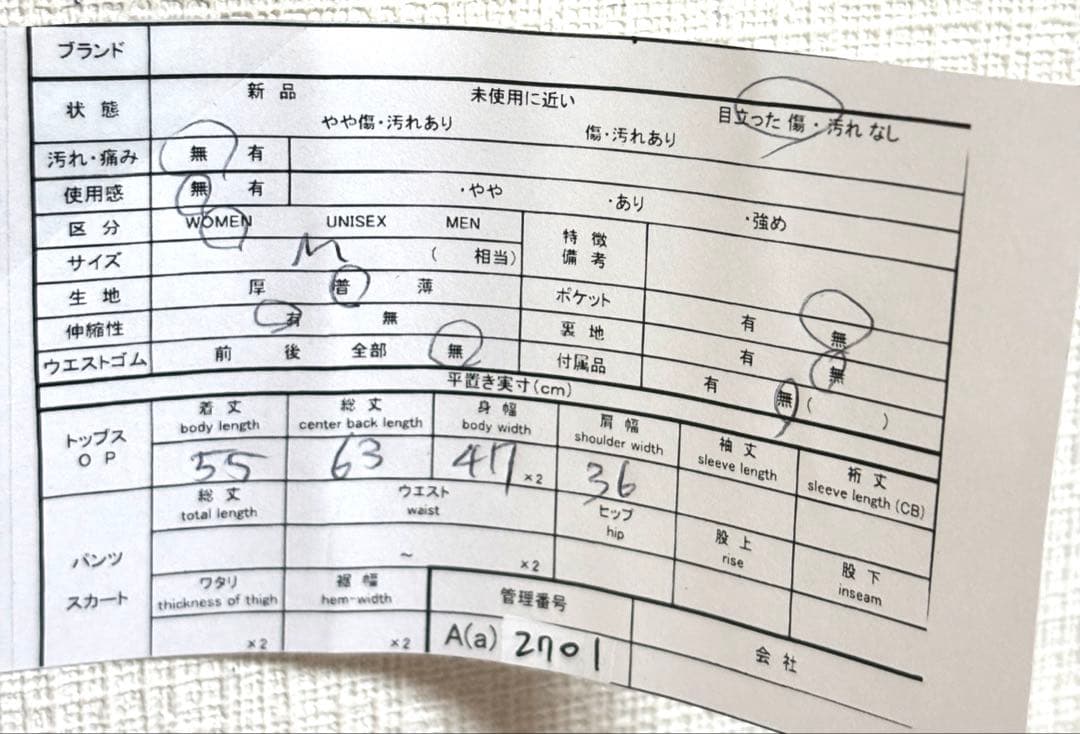 ブランド
状態 新品 未使用に近い 目立った傷・汚れなし
やや傷・汚れあり 傷・汚れあり
汚れ・痛み 無 有
使用感 無 有 ・やや ・あり ・強め
区分 WOMEN UNISEX MEN 特徴
備考
サイズ M ( 相当)
生地 厚 普 薄 ポケット 有 無
伸縮性 有 無 裏地 有 無
ウエストゴム 前 後 全部 無 付属品 有 無 ( )
平置き実寸(cm)
トップス
OP
着丈 総丈 身幅 肩幅 袖丈 裄丈
body length center back length body width shoulder width sleeve length sleeve length (CB)
55 63 47 ×2 36
パンツ
スカート
総丈 ウエスト ヒップ 股上 股下
total length waist hip rise inseam
~ ×2
ワタリ 裾幅 管理番号
thickness of thigh hem-width
×2 ×2 A(a) 2701 会社